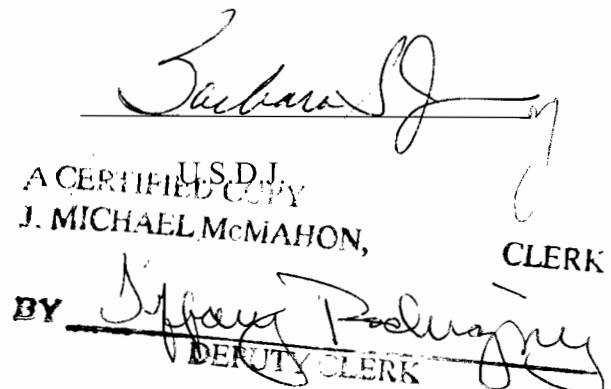 Barbara S J
U.S.D.J.
A CERTIFIED COPY
J. MICHAEL McMAHON, CLERK
BY Tiffany
DEPUTY CLERK